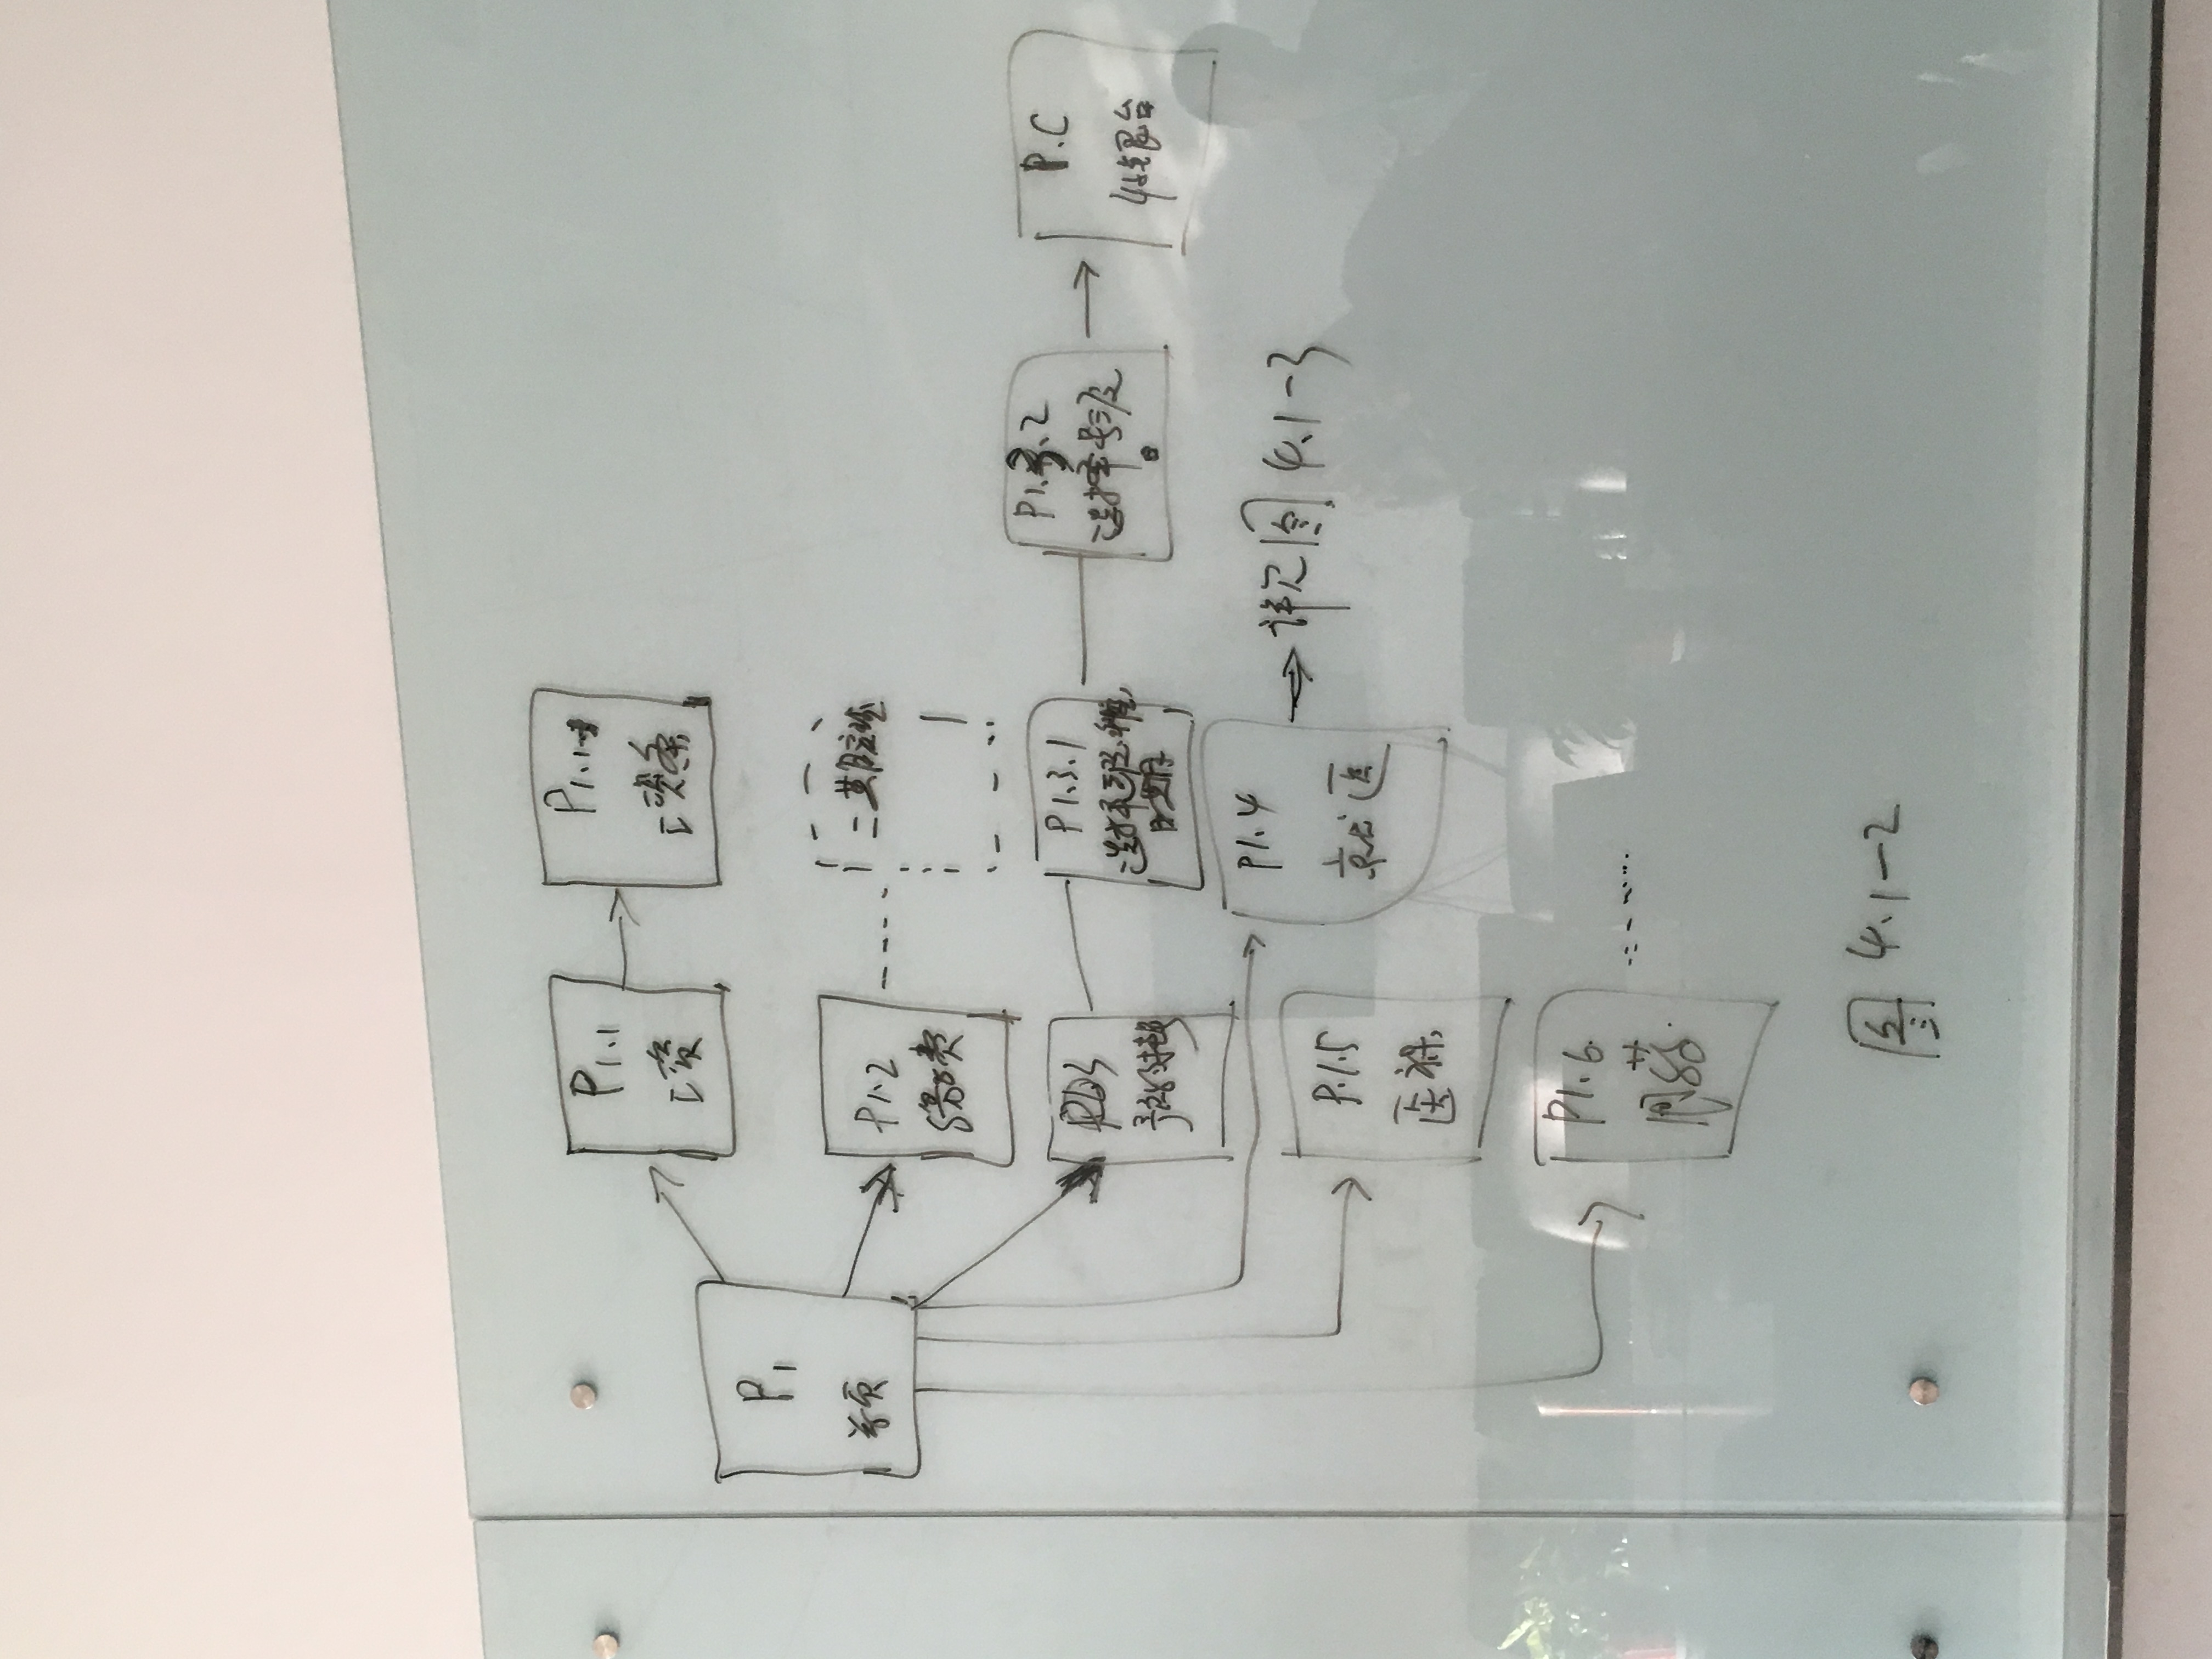 P1
首页
P1.1
工资
P1.1.1
工资条
P1.2
缴费
二期实现
P1.3
预约挂号
P1.3.1
选择医院、科室、
日期
P1.3.2
选择号源
P.C
收银台
P1.4
就医
详见图 4.1-3
P.1.5
医保
P1.6
图 4.1-2